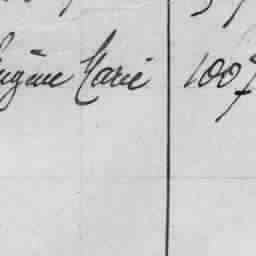 Eugène Marie 1007